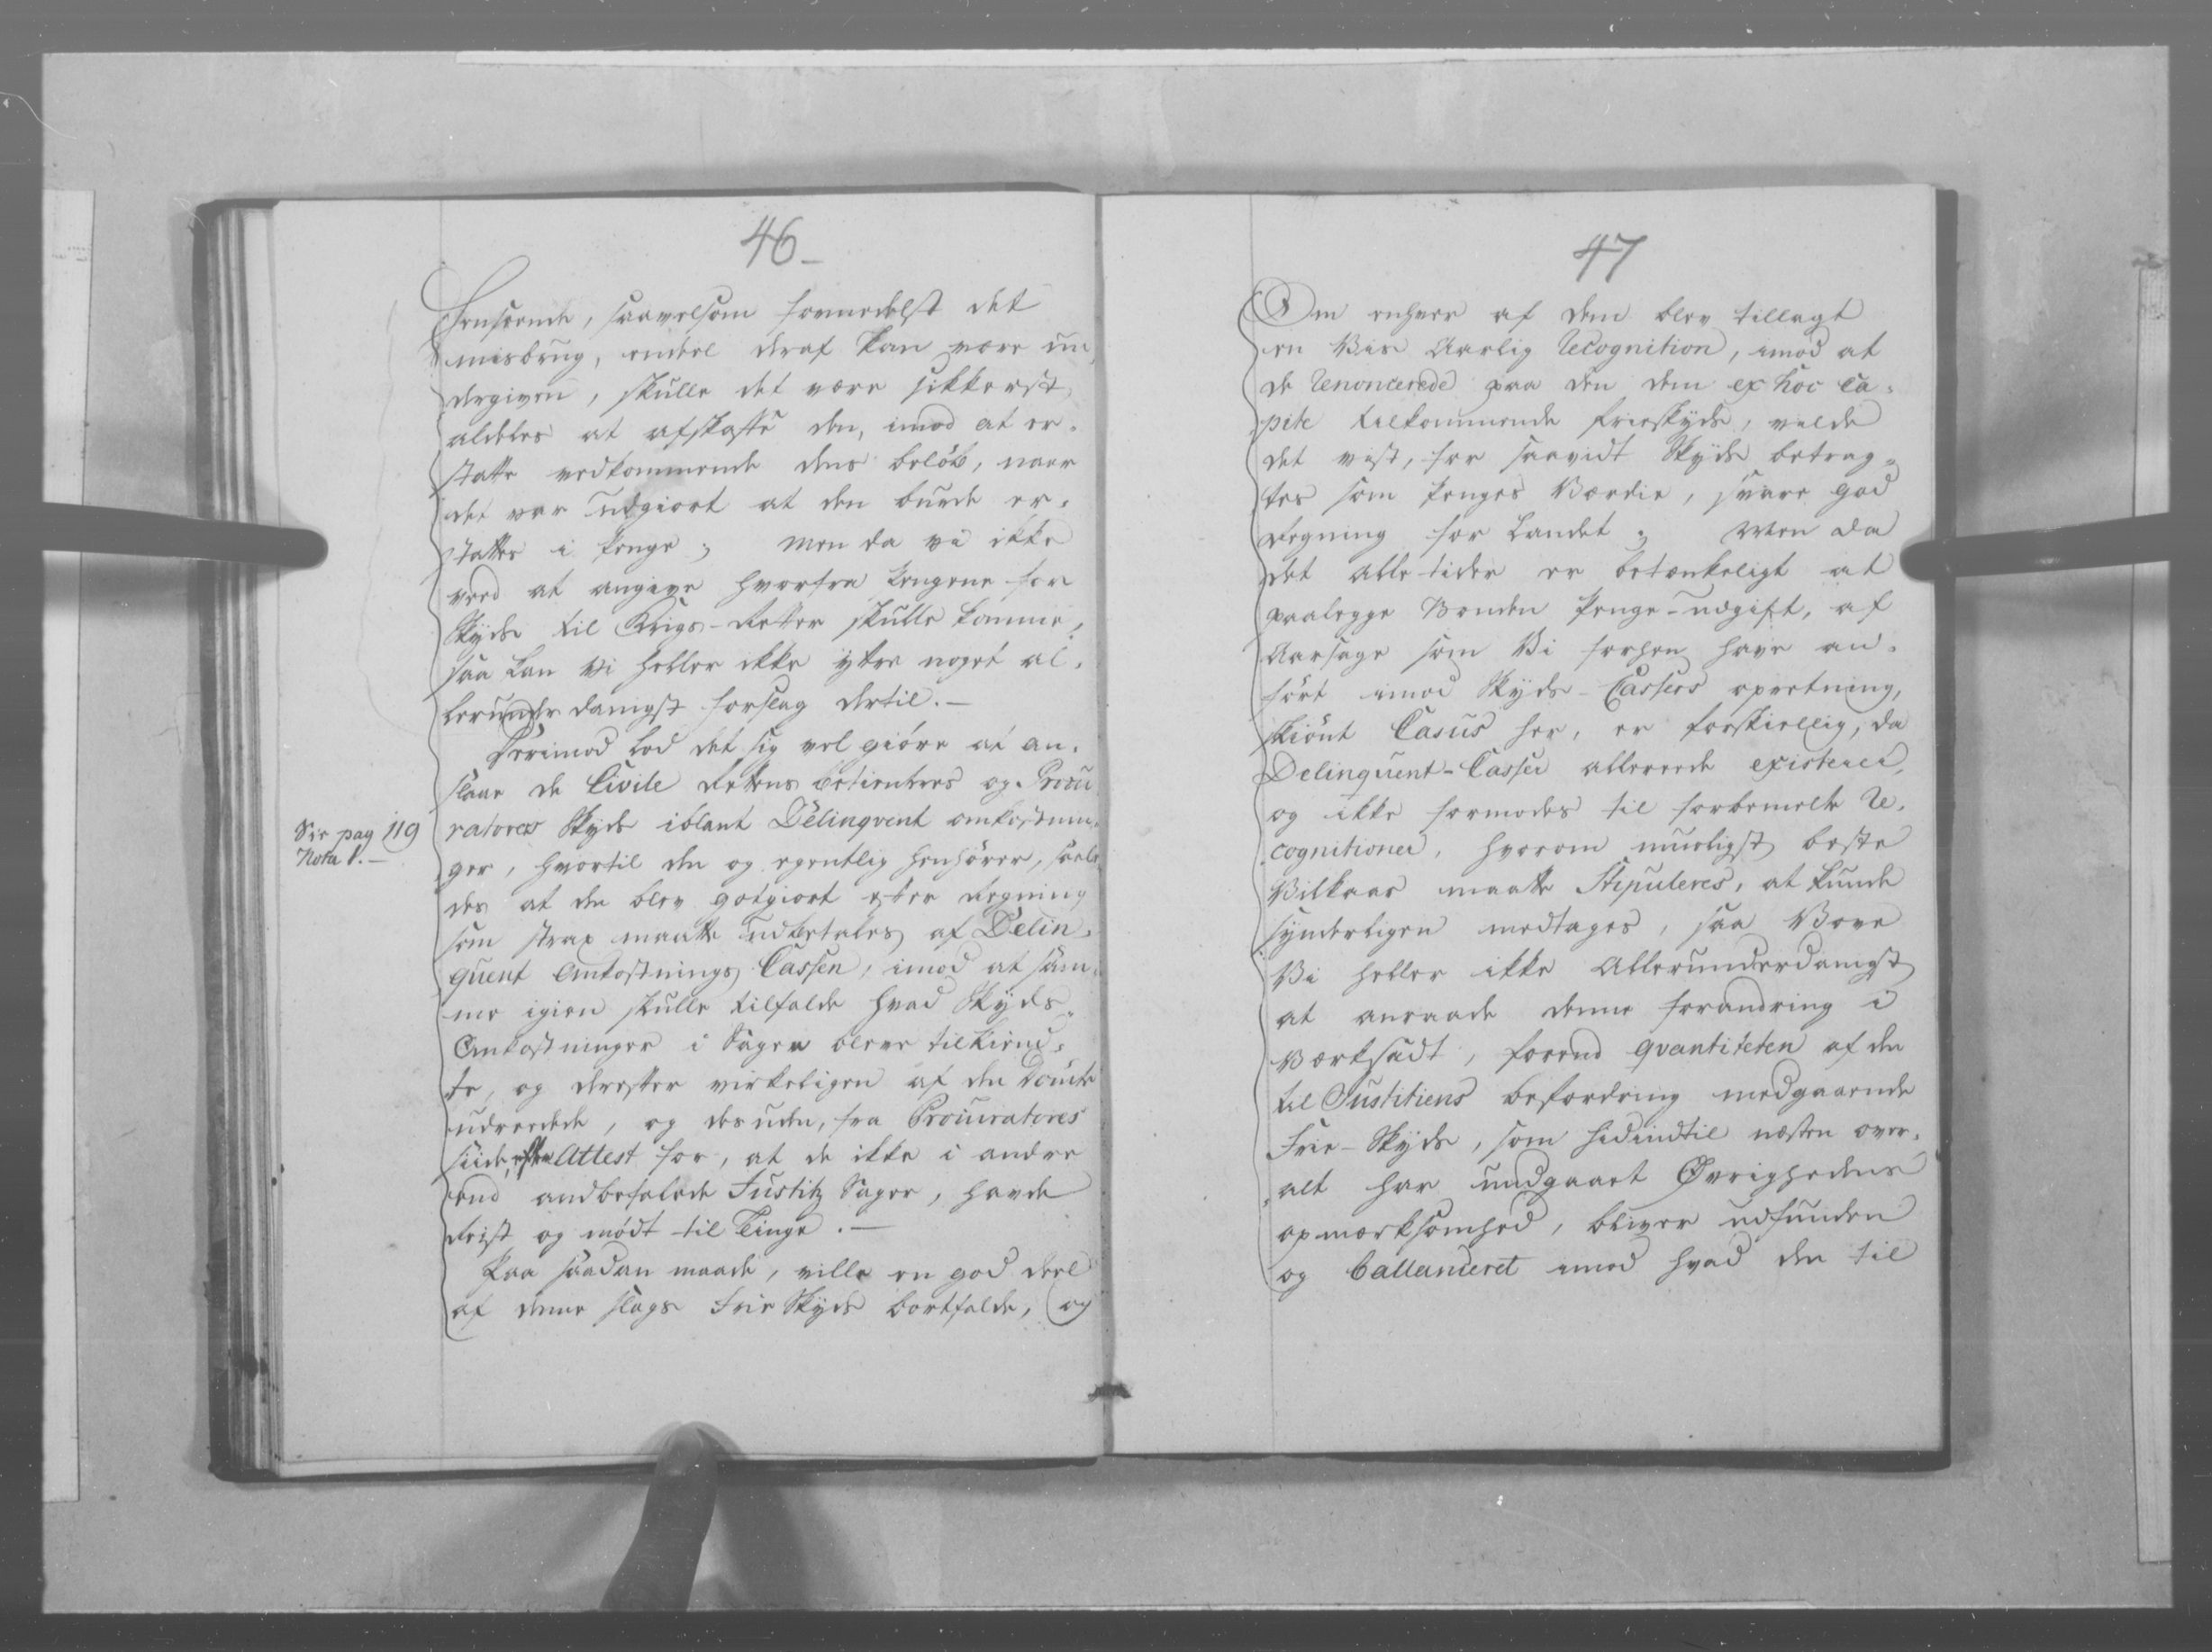 46
Henseende, saavelsom formedelst det
misbrug, endeel deraf kan være un,
dergiven, skulle det være sikkerst
aldeles at afskaffe den, imod at er,
statte vedkommende dens beløb, naar
det var udgiort at den burde er,
stattes i penge; Men da vi ikke
veed at angive hvorfra pengene for
Skyds til Krigs-Retter skulle komme,
saa kan Vi heller ikke yttre noget al,
lerunderdanigst forslag dertil. —
Derimod lod det sig vel giøre at an,
slaae de Civile Rettens betienteres og Procu
ratorers Skyds iblant Delinqvent omkostnin,
ger, hvortil den og egentlig henhører, saale
des at den blev godtgiort efter Regning
som strax maatte udbetales af Delin,
quent Omkostnings Cassen, imod at sam,
me igien skulle tilfalde hvad Skyds,
Omkostninger i Sagen bleve tilkiend,
te, og derefter virkeligen af den Dømte
udreedede, og desuden, fra Procuratores
siide, efter Attest for, at de ikke i andre
end andbefalede Justitz Sager, havde
Reist og mødt til Tinge. —
Paa saadan maade, ville en god deel
af denne slags Frie Skyds bortfalde, og
Sir pag 119
Nota 1. —
47
Om enhver af dem blev tillagt
en Vis Aarlig Recognition, imod at
de Renoncerede paa den dem ex hoc Ca,
pite tilkommende frieskyds, vilde
det vist, for saavidt Skyds betrag,
tes som penges Værdie, svare god
Regning for Landet; Men da
det alletider er betænkeligt at
paalegge Bonden penge-udgift, af
Aarsage som Vi forhen have an,
ført imod Skyds-Cassers oprettning,
skiønt Casus her, er forskiellig, da
Delinquent-Casser allereede existerer,
og ikke formodes til forbemelte Re,
cognitioner, hvorom mueligst beste
Vilkaar maatte Stipuleres, at kunde
synderligen medtages, saa Vove
Vi heller ikke Allerunderdanigst
at anraade denne forandring i
Værksadt, førend Qvantiteten af den
til Justitiens befordring medgaaende
Frie-Skyds, som hidindtil næsten over,
alt har undgaaet Øvrighedens
opmærksomhed, bliver udfunden
og ballanceret imod hvad den til